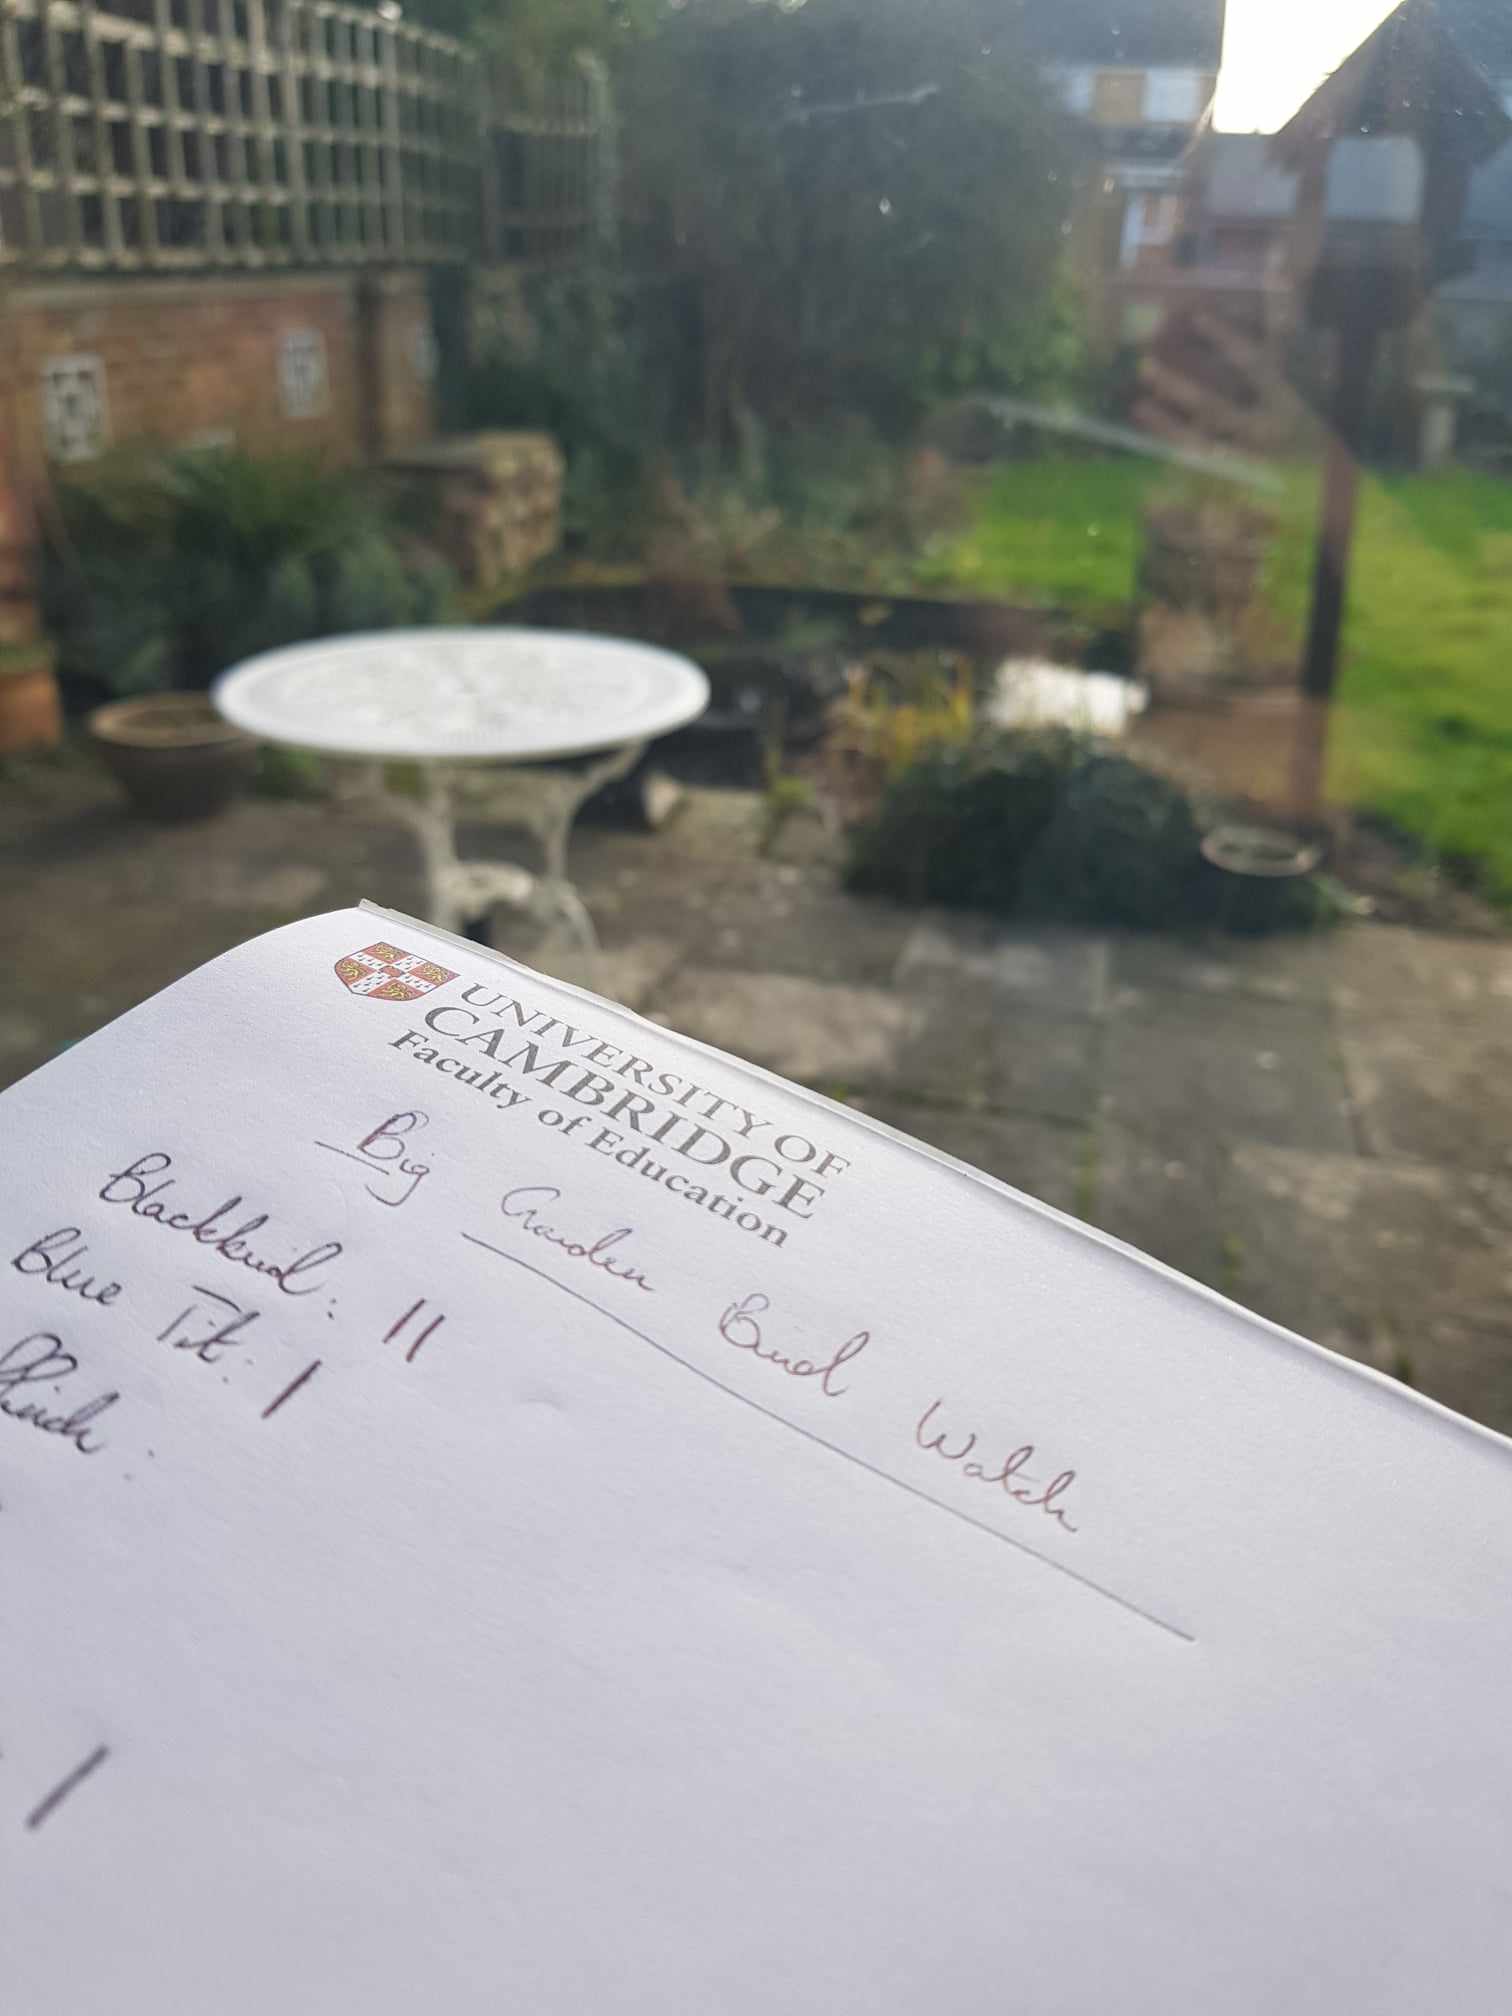 UNIVERSITY OF
CAMBRIDGE
Faculty of Education
Big Garden Bird Watch
Blackbird: II
Blue Tit: I
I